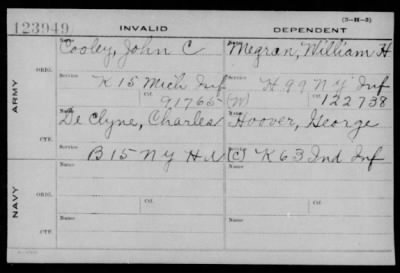 (3-H-3)
123949 INVALID DEPENDENT
Name Name
Cooley, John C Megran, William H
ORIG. Service Service
K 15 Mich Inf H. 99 N Y Inf
Ctf. Ctf.
91765 (W) 122738
ARMY
Name
De Clyne, Charles Hoover, George
CTF. Service
B 15 N Y H A (C) K 63 Ind Inf
Name Name
ORIG.
Ctf. Ctf.
NAVY
Name Name
CTF.